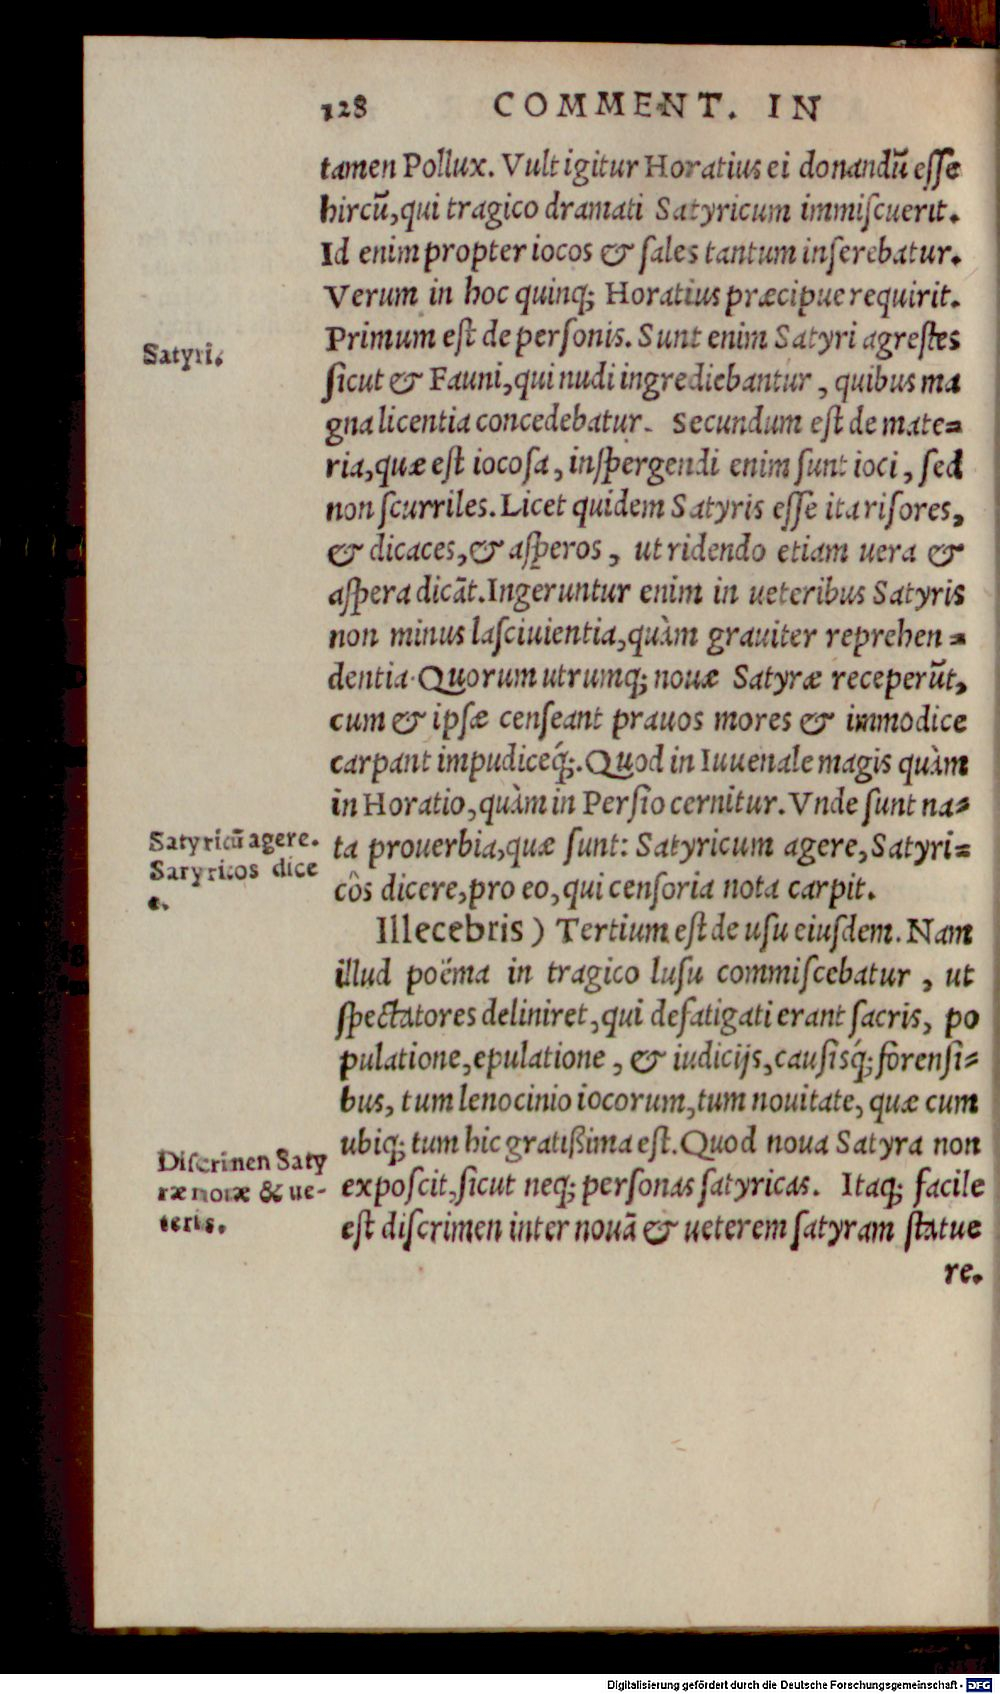 128 COMMENT. IN
tamen Pollux. Vult igitur Horatius ei donandū esse
hircū, qui tragico dramati Satyricum immiscuerit.
Id enim propter iocos & sales tantum inserebatur.
Verum in hoc quinq; Horatius præcipue requirit.
Primum est de personis. Sunt enim Satyri agrestes
Satyri.
sicut & Fauni, qui nudi ingrediebantur, quibus ma
gna licentia concedebatur. Secundum est de mate=
ria, quæ est iocosa, inspergendi enim sunt ioci, sed
non scurriles. Licet quidem Satyris esse ita risores,
& dicaces, & asperos, ut ridendo etiam uera &
aspera dicāt. Ingeruntur enim in ueteribus Satyris
non minus lasciuientia, quàm grauiter reprehen=
dentia. Quorum utrumq; nouæ Satyræ receperūt,
cum & ipsæ censeant prauos mores & immodice
carpant impudiceq́;. Quod in Iuuenale magis quàm
in Horatio, quàm in Persio cernitur. Vnde sunt na=
Satyricū agere.
Saryricos dice
e.
ta prouerbia, quæ sunt: Satyricum agere, Satyri=
côs dicere, pro eo, qui censoria nota carpit.
Illecebris) Tertium est de usu eiusdem. Nam
illud poëma in tragico lusu commiscebatur, ut
spectatores deliniret, qui defatigati erant sacris, po
pulatione, epulatione, & iudicijs, causisq́; forensi=
bus, tum lenocinio iocorum, tum nouitate, quæ cum
ubiq; tum hic gratißima est. Quod noua Satyra non
Discrimen Saty
ræ nouæ & ue-
teris.
exposcit, sicut neq; personas satyricas. Itaq; facile
est discrimen inter nouā & ueterem satyram statue
re.
Digitalisierung gefördert durch die Deutsche Forschungsgemeinschaft - DFG